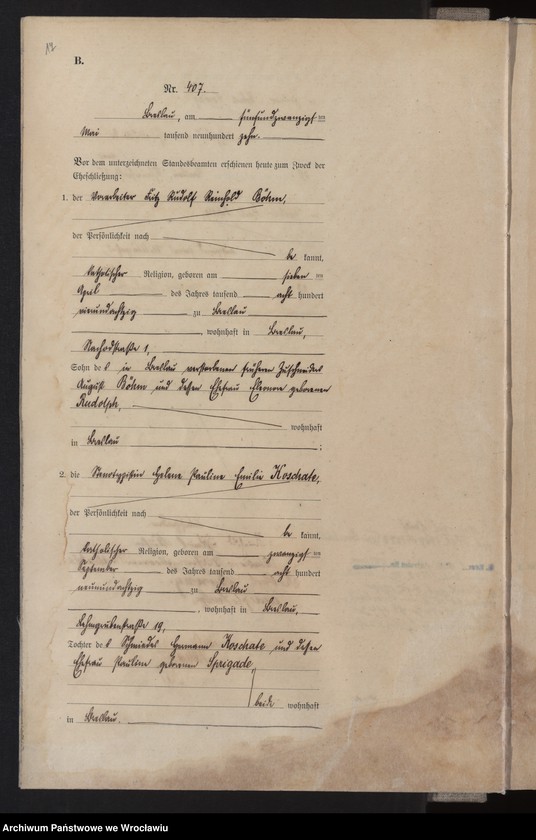 B.
Nr. 407.
Breslau, am fünfundzwanzigsten
Mai tausend neunhundert zehn.
Vor dem unterzeichneten Standesbeamten erschienen heute zum Zweck der
Eheschließung:
1. der Vorarbeiter Fritz Rudolf Reinhold Böhm,
der Persönlichkeit nach
be kannt,
katholischer Religion, geboren am sieben ten
April des Jahres tausend acht hundert
vierundachtzig zu Breslau
, wohnhaft in Breslau,
Nachodstraße 1,
Sohn des in Breslau verstorbenen früheren Zuschneiders
August Böhm und dessen Ehefrau Eleonore geborenen
Rudolph,
wohnhaft
in Breslau ;
2. die Stenotypistin Helene Pauline Emilie Koschate,
der Persönlichkeit nach
be kannt,
katholischer Religion, geboren am zwanzigsten
September des Jahres tausend acht hundert
neunundachtzig zu Breslau
, wohnhaft in Breslau,
Lehmgrubenstraße 19,
Tochter des Schmiedes Hermann Koschate und dessen
Ehefrau Pauline geborenen Sprigade,
beide wohnhaft
in Breslau.
Archiwum Państwowe we Wrocławiu